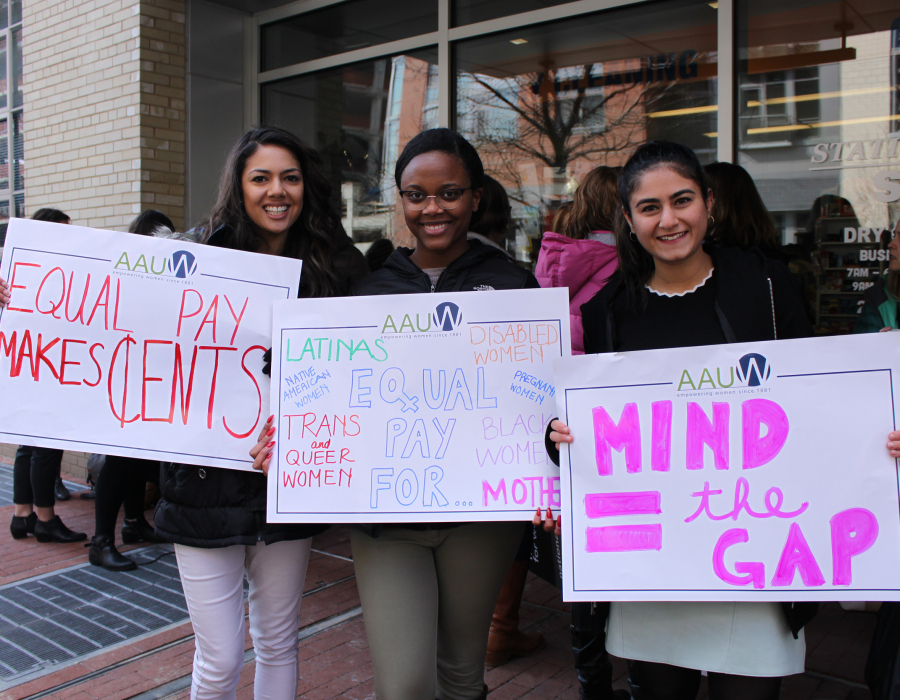 AAUW
empowering women since 1881
EQUAL PAY
MAKES ¢ENTS
AAUW
empowering women since 1881
LATINAS
DISABLED
WOMEN
NATIVE
AMERICAN
WOMEN
EQUAL
PAY
FOR...
PREGNANT
WOMEN
TRANS
and
QUEER
WOMEN
BLACK
WOME
MOTHE
AAUW
empowering women since 1881
MIND
= the
GAP
DRY
BUSI
7AM
9AM